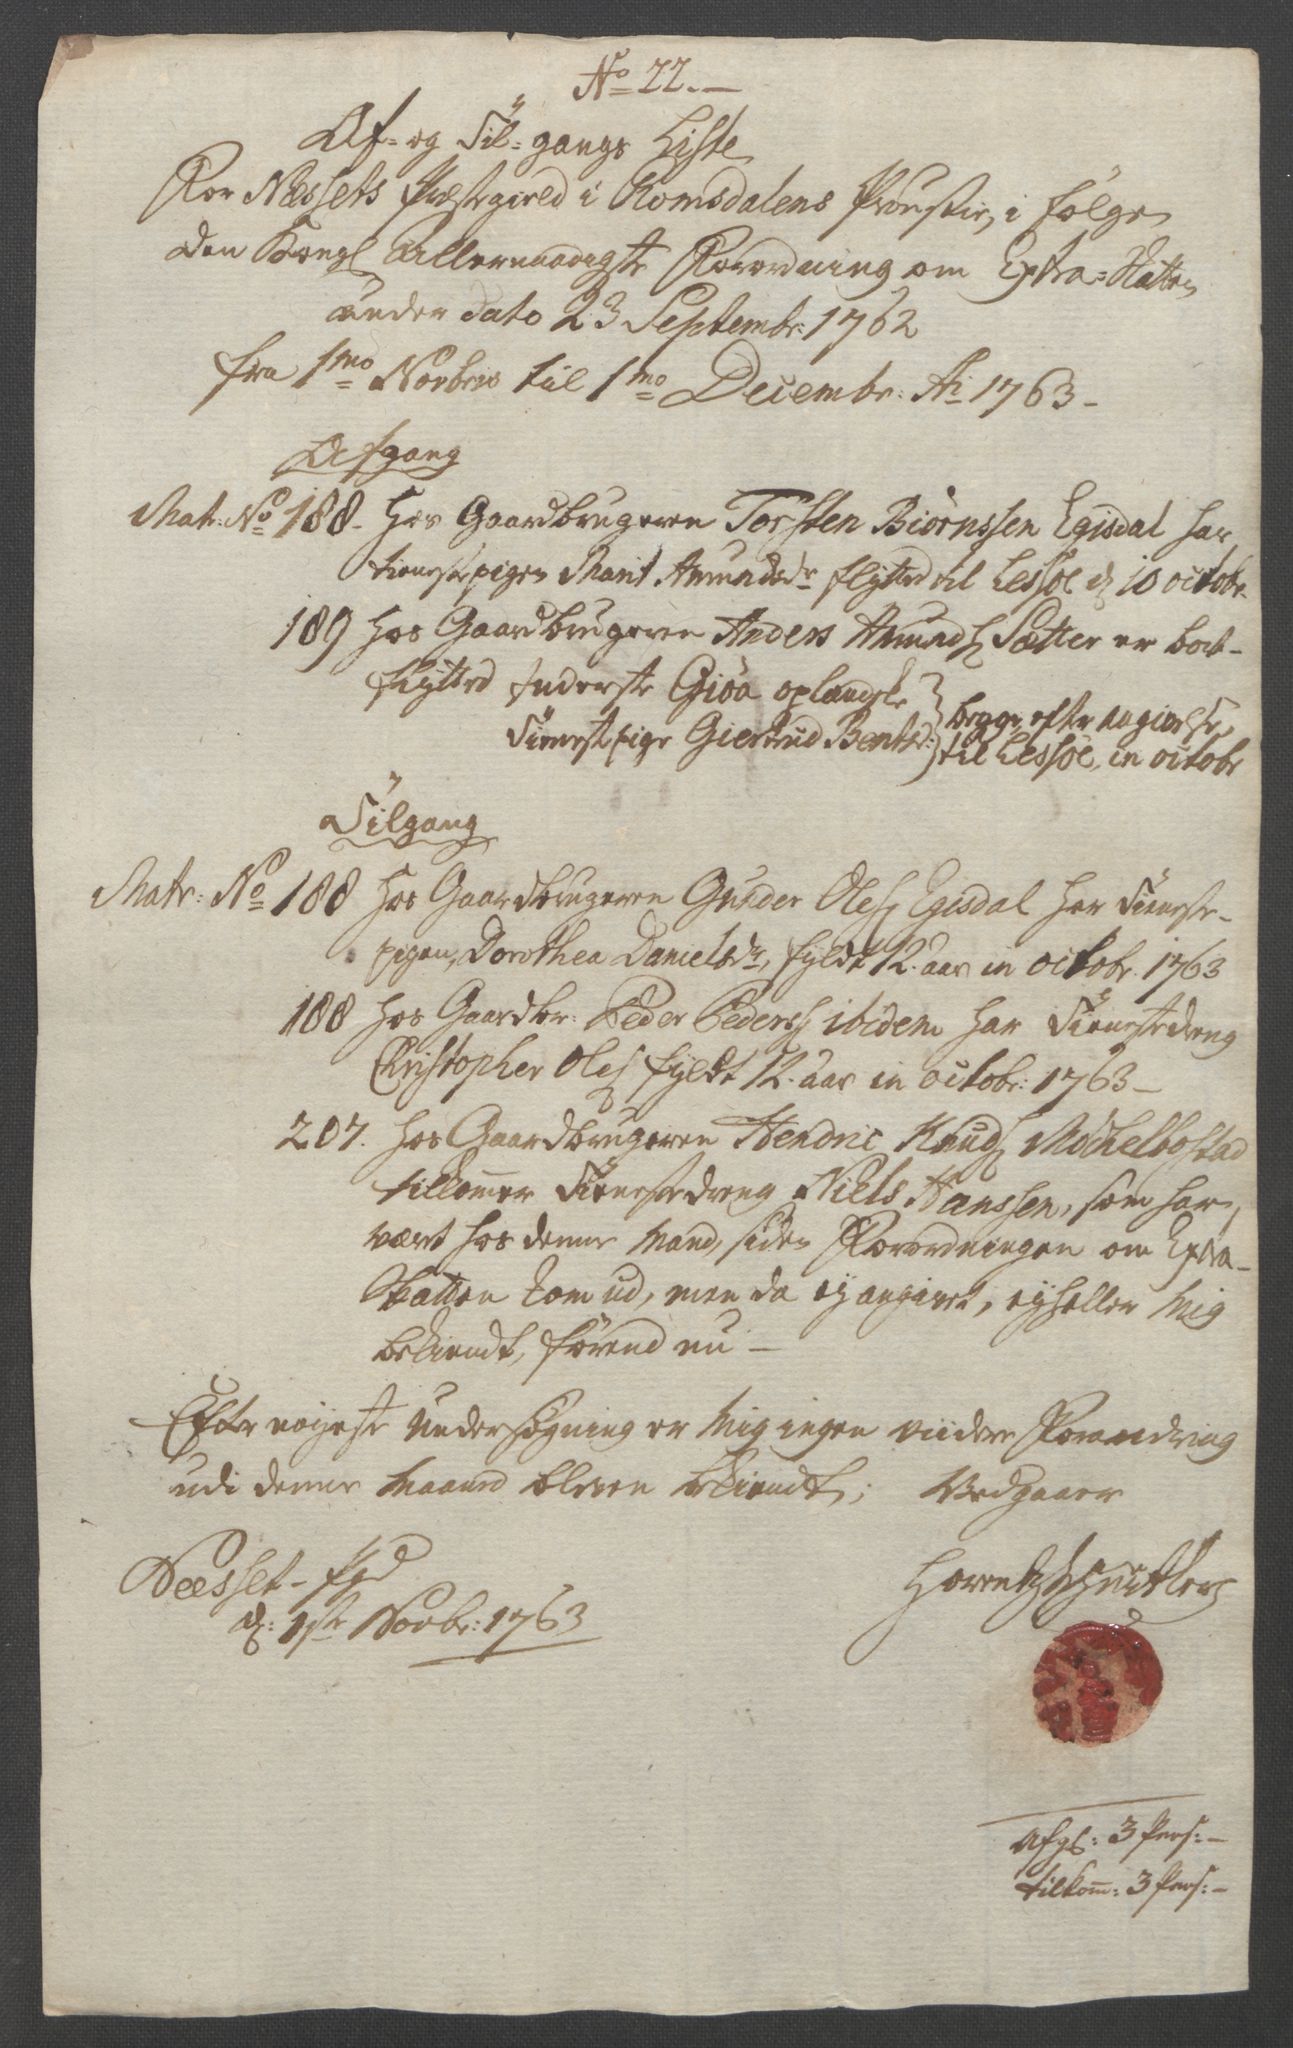 No 22.
Af- og Til-gangs Liste
For Næssets Præstegield i Romsdalens Proustie, i følge
den Kongl Allernaadigste Forordning om Extra-Skatten
under dato 23 Septembr: 1762
fra 1mo Novbris til 1mo Decembr: Ai 1763-
Afgang
Matr: No 188- Hos Gaardbrugeren Torsten Biörnssen Egisdal har
tienestepigen Marit Amundsdr flytted til Lessöe d 10 octobr.
189 Hos Gaardbrugeren Anders Amunds Sætter er bort-
flytted Inderste Giöa oplandske
Tienestpige Giertrud Bentsd: } begge efter angivelse,
til Lessöe, in octobr
Tilgang
Matr: No 188 Hos Gaardbrugeren Gunder Oles Egisdal har Tieneste-
pigen, Dorothea Danielsdr, fyldt 12. aar in octobr. 1763
188 Hos Gaardbr: Peder Peders ibidem har Tienestedreng
Christopher Oles fyldt 12. aar in octobr: 1763-
207. Hos Gaardbrugeren Hendric Knuds Möchelbostad
tilkommer Tienestedreng Niels Hanssen, som har,
vært hos denne Mand, siden Forordningen om Extra-
Skatten kom ud, men da ey angivet, eyheller Mig
bekiendt, förend nu -
Efter nöyeste Undersögning er Mig ingen viidere Forandring
udi denne Maaned bleven bekiendt; Vedgaaer
Næsset- Pgd
d: 1ste Novbr: 1763
Afg: 3 Pers: -
tilkom: 3 Pers: -